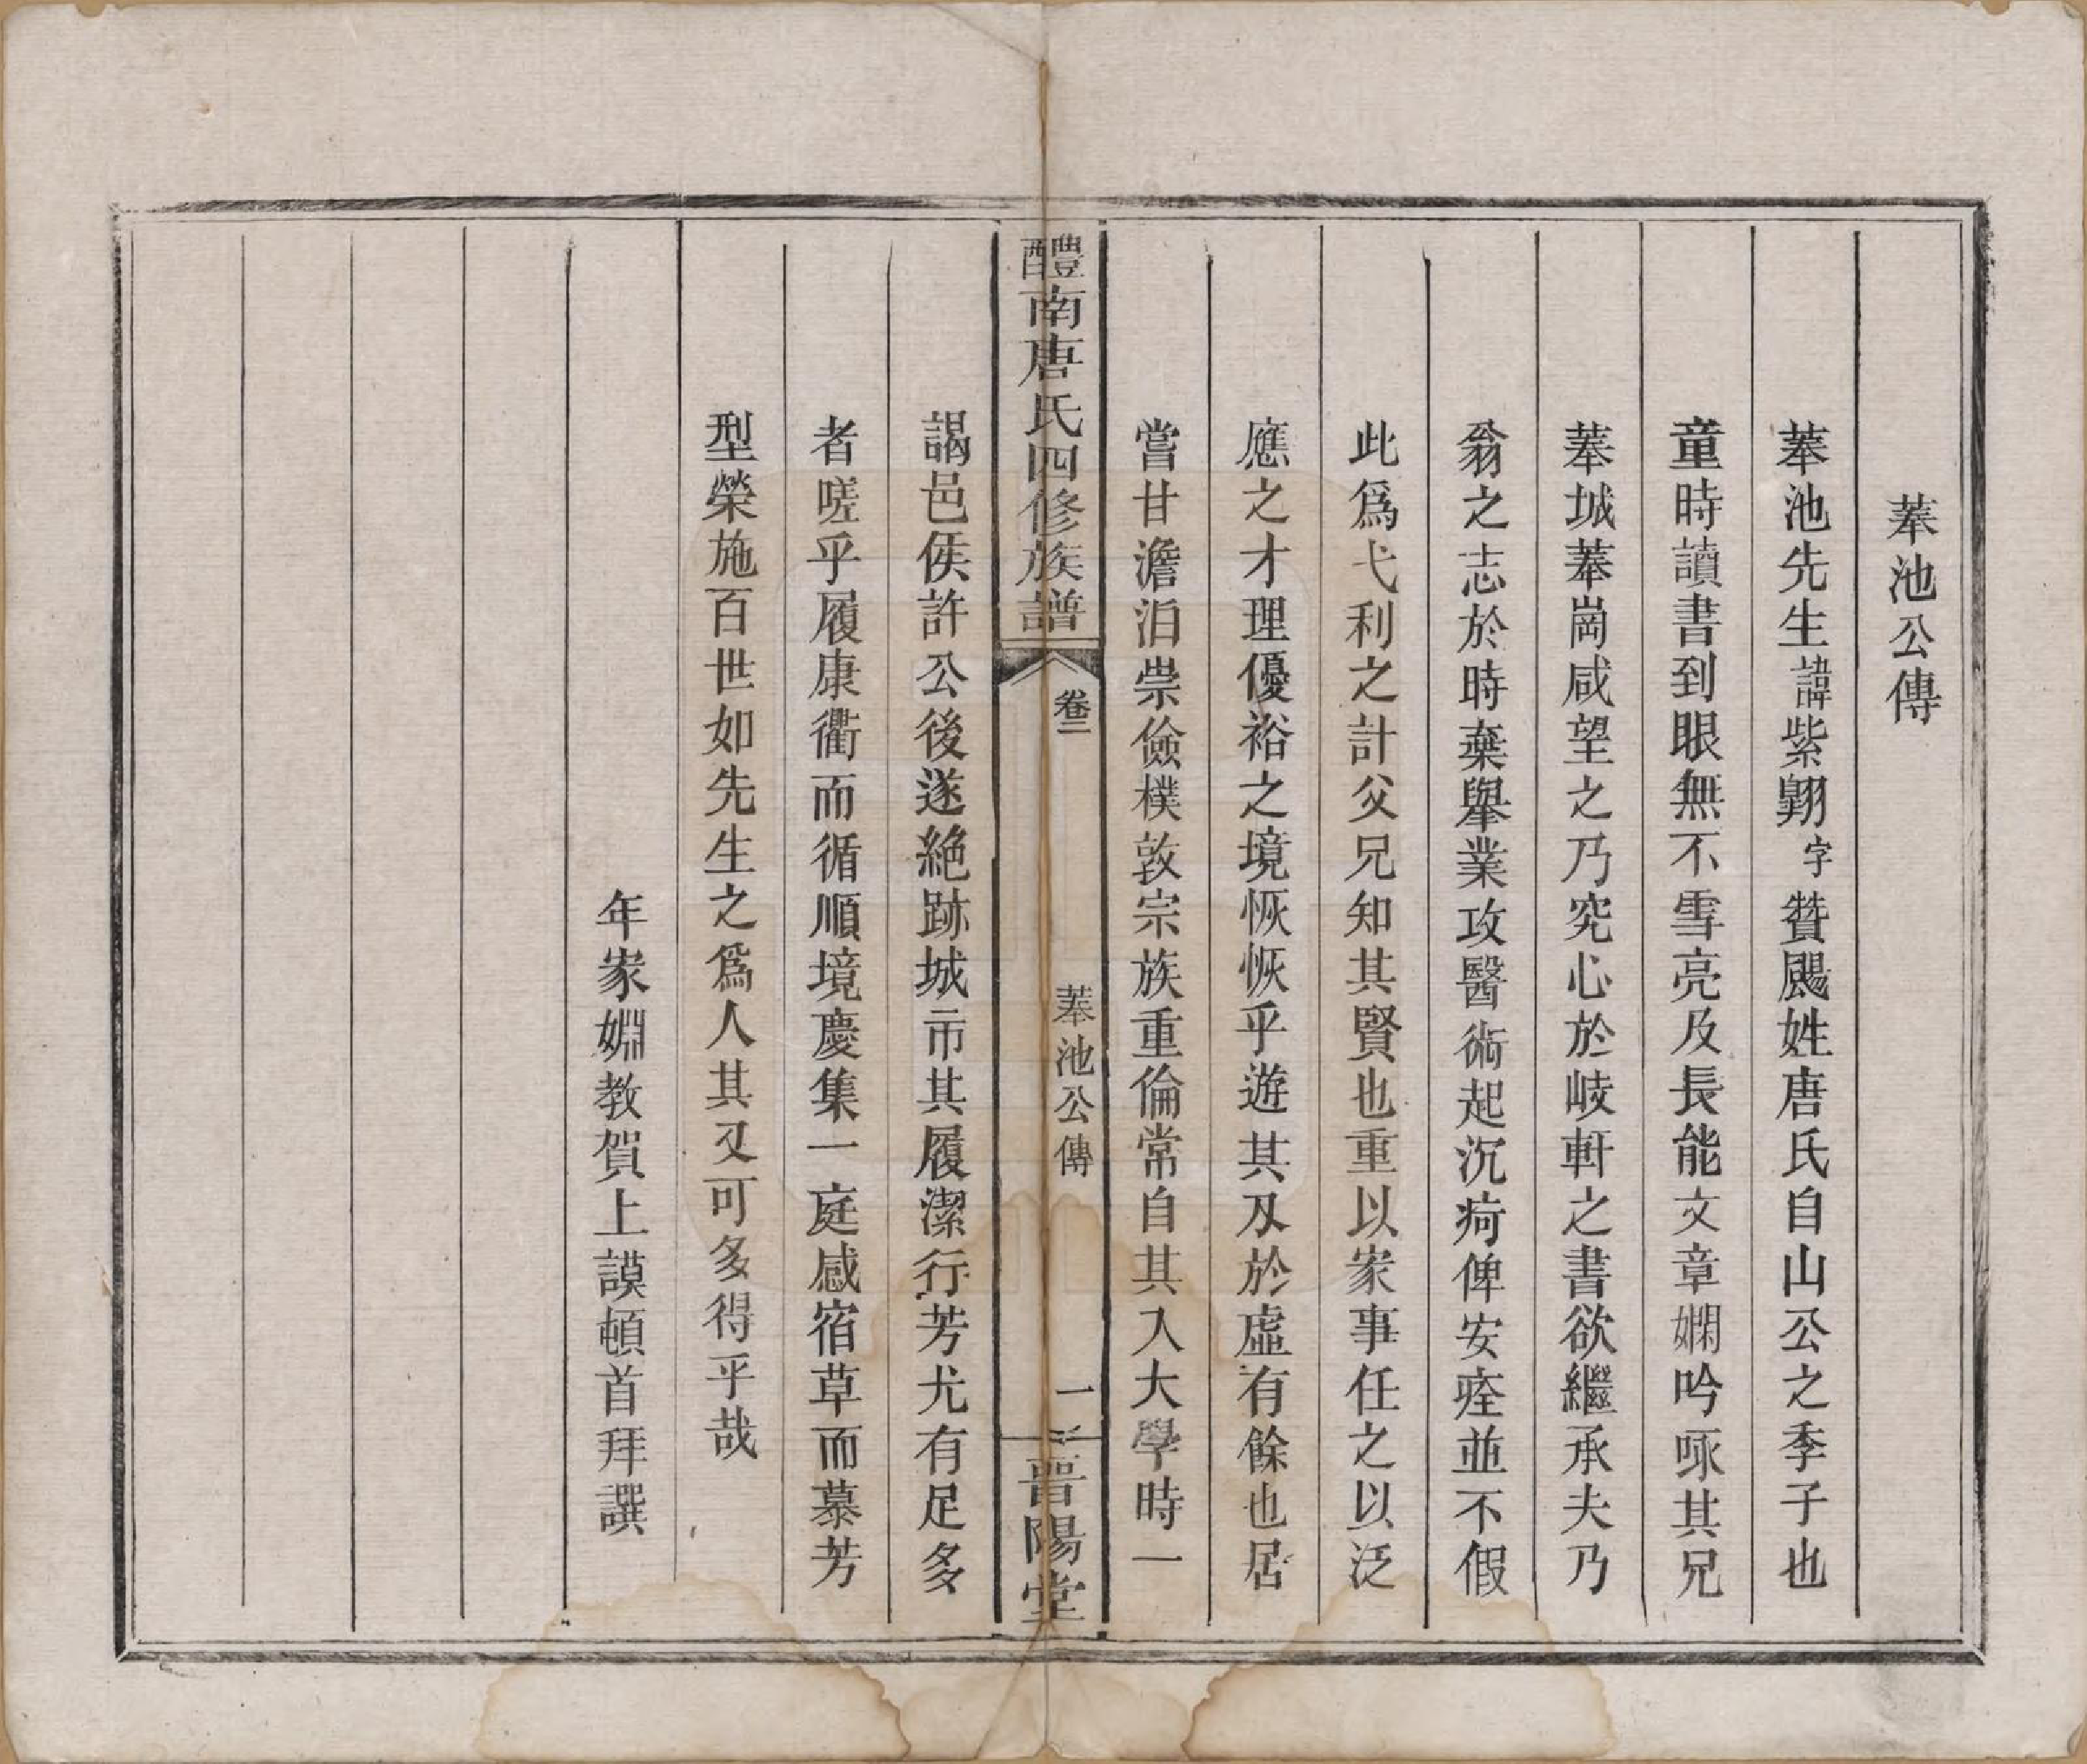 莑池公傳
莑池先生諱紫翺字贊颺姓唐氏自山公之季子也
童時讀書到眼無不雪亮及長能文章嫻吟咏其兄
莑城莑崗咸望之乃究心於岐軒之書欲繼承夫乃
翁之志於時棄舉業攻醫術起沉疴俾安痊並不假
此爲弋利之計父兄知其賢也重以家事任之以泛
應之才理優裕之境恢恢乎遊其刄於虛有餘也居
嘗甘澹泊崇儉樸敦宗族重倫常自其入大學時一
醴南唐氏四修族譜
卷二
莑池公傳
一
晉陽堂
謁邑侯許公後遂絕跡城市其履潔行芳尤有足多
者嗟乎履康衢而循順境慶集一庭感宿草而慕芳
型榮施百世如先生之爲人其又可多得乎哉
年家婣教賀上謨頓首拜譔